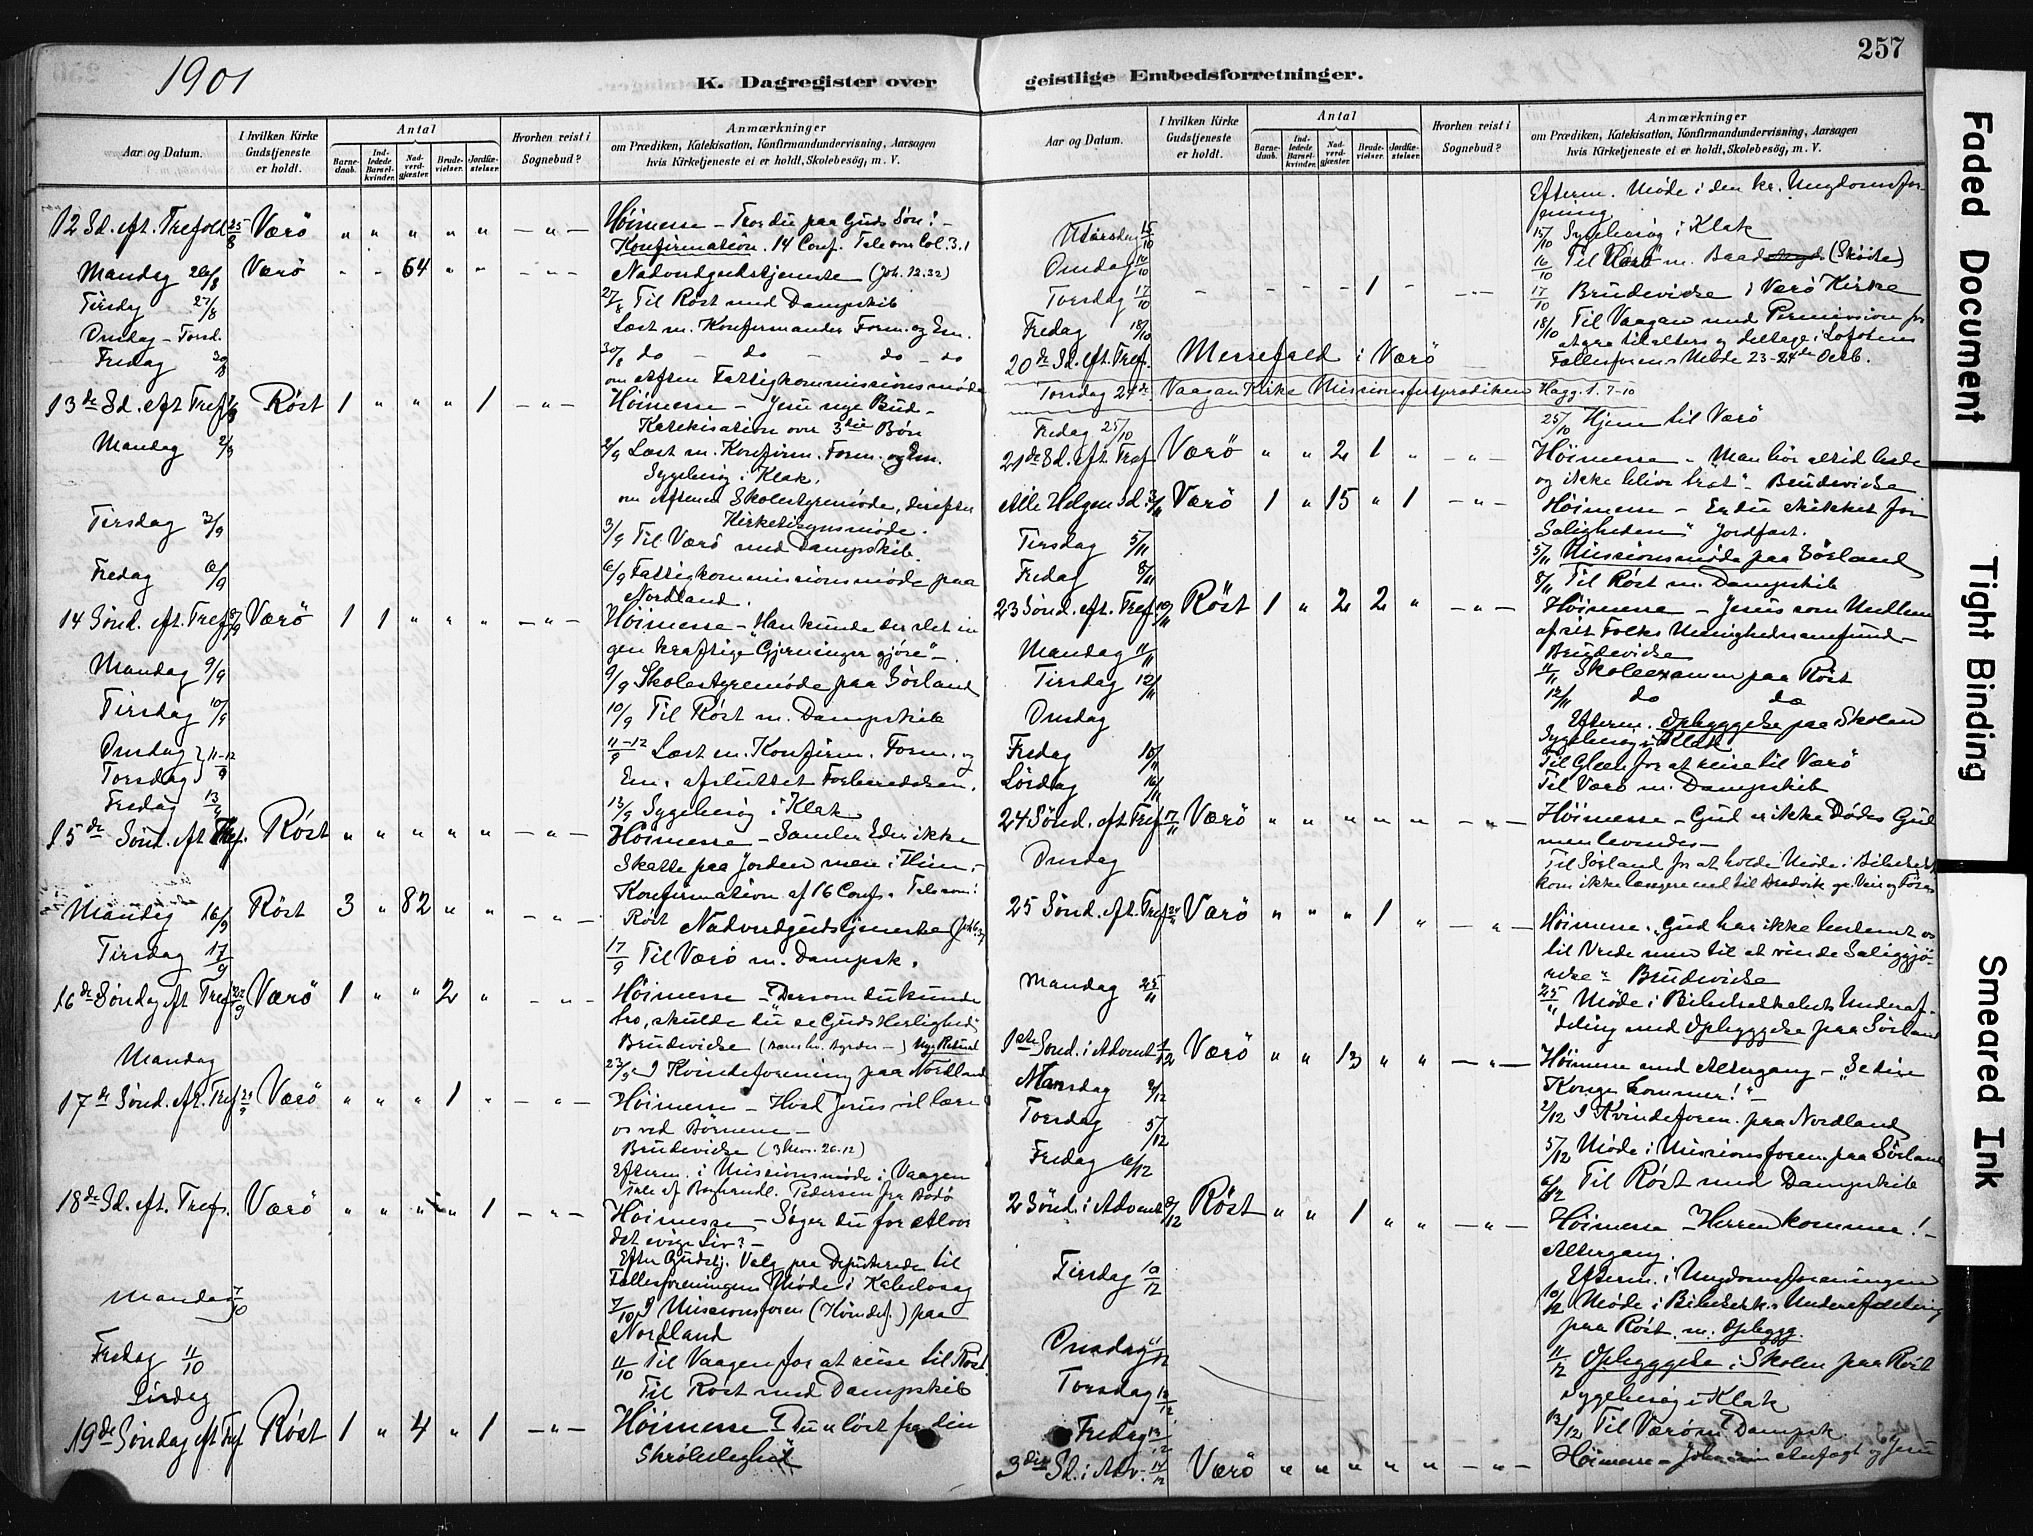 1901
K. Dagregister over
Aar og Datum.
I hvilken Kirke Gudstjeneste er holdt.
Antal
Barnedaab.
Indledede Barselkvinder.
Nadverdgjæster.
Brudevielser.
Jordfæstelser.
Hvorhen reist i Sognebud?
Anmærkninger
om Prædiken, Katekisation, Konfirmandundervisning, Aarsagen
hvis Kirketjeneste ei er holdt, Skolebesög, m. V.
12 Sd. eft. Trefold 25/8 Værö " " " " " — " — Höimesse — Tror du paa Guds Sön? —
Konfirmation. 14 Conf. Tale over Col. 3.1
Mandag 26/8 Værö " " 64 " " — " — Nadverdgudstjeneste (Joh. 12.32)
Tirsdg 27/8 27/8 Til Röst med Dampskib
Onsdag – Torsd. Læst m. Konfirmander Form. og Em.
Fredag 30/8 30/8 do — do — do — do
om Aften Fattigkommissionsmöde
13de Sd. eft Tref 1/9 Röst 1 " " " 1 — " — Höimesse — Jesu nye Bud —
Katekisation over 3die Bön
Mandag 2/9 2/9 Læst m. Konfirm. Form. og Em.
Sygebesög i Klak.
om Aftenen Skolestyremöde, derefter
Kirketilsynsmöde.
Tirsdag 3/9 3/9 Til Værö med Dampskib
Fredag 6/9 6/9 Fattigkommissionsmöde paa
Nordland.
14 Sönd. eft. Tref 8/9 Værö 1 1 " " " — " — Höimesse — Han kunde der slet in
gen kraftige Gjerninger gjöre" —
Mandag 9/9 9/9 Skolestyremöde paa Sörland
Tirsdag 10/9 10/9 Til Röst m. Dampskib
Onsdag } 11–12/9 11–12/9 Læst m. Konfirm. Form. og
Torsdag Em. afsluttet Forberedelsen.
Fredag 13/9 13/9 Sygebesög i Klak
15de Sönd. eft Tref. Röst " " " " " — " — Höimesse — Samler Eder ikke
Skatte paa Jorden men i Him. —
Konfirmation af 16 Conf.
Mandag 16/9 Röst 3 " 82 " " — " — Röst Nadverdgudstjeneste
Tirsdag 17/9 17/9 Til Værö m. Dampsk.
16de Söndag eft Tref 22/9 Værö 1 " " 2 " — " — Höimesse — "Dersom du kunde
tro, skulde du se Guds Herlighed"
Brudevielse Nye Ritual
Mandag 23/9 I Kvindeforening paa Nordland
17de Sönd. eft. Tref 29/9 Værö " " " 1 " — " — Höimesse — Hvad Jesus vil lære
os ved Börnene —
Brudevielse
Efterm. i Missionsmöde i Vaagen
Tale af Boghandl. Pedersen fra Bodö
18de Sd. eft. Tref. Værö " " " " 1 — " — Höimesse — Söger du for Alvor
det evige Liv? —
Efter Gudstj. Valg paa Deputerede til
Fællesforeningens Möde i Kabelvaag
Mandag 7/10 7/10 I Missionsforen (Kvindef.) paa
Nordland
Fredag 11/10 11/10 Til Vaagen for at reise til Röst
Lördag Til Röst med Dampskib
19de Söndag eft Tref Röst 1 " 4 " 1 — " — Höimesse "Du er löst fra din
Skröbelighed"
257
geistlige Embedsforretninger.
Aar og Datum.
I hvilken Kirke Gudstjeneste er holdt.
Antal
Barnedaab.
Indledede Barselkvinder.
Nadverdgjæster.
Brudevielser.
Jordfæstelser.
Hvorhen reist i Sognebud?
Anmærkninger
om Prædiken, Katekisation, Konfirmandundervisning, Aarsagen
hvis Kirketjeneste ei er holdt, Skolebesög, m. V.
Efterm. Möde i den kr. Ungdomsfor
ening
Tirsdag 15/10 15/10 Sygebesög i Klak
Onsdag 16/10 16/10 Til Værö m. Baad (Sköite)
Torsdag 17/10 - - - - 1 - — " — 17/10 Brudevielse i Værö Kirke
Fredag 18/10 18/10 Til Vaagan med Permission for
at gaa til Alters og deltage i Lofotens
20de Sd. eft. Tref. Messefald i Værö Fællesforen.s Möde 23–24de Octb.
Torsdag 24de. Vaagan Kirke Missionsfestprædiken Hagg. 1. 7–10
Fredag 25/10 25/10 Hjem til Værö
21de Sd. eft. Tref Værö " " 2 1 " — " — Höimesse — "Man bör altid bede
og ikke blive træt" — Brudevielse
Alle Helgensd. 3/11 Værö 1 " 15 " 1 — " — Höimesse — Er du skikket for
Saligheden" Jordfæst.
Tirsdag 5/11 5/11 Missionsmöde paa Sörland
Fredag 8/11 8/11 Til Röst m. Dampskib
23 Sönd. eft. Tref. 10/11 Röst 1 " 2 2 " — " — Höimesse — Jesus som Medlem
af sit Folks Menighedssamfund —
Brudevielse
Mandag 11/11 11/11 Skoleexamen paa Röst
Tirsdag 12/11 12/11 do do
Onsdag Efterm. Opbyggelse paa Skolen
Sygebesög i Klak
Fredag 15/11 Til Gleen for at reise til Værö
Lördag 16/11 Til Værö m. Dampskib
24 Sönd. eft Tref 17/11 Værö " " " " " — " — Höimesse — Gud er ikke Dödes Gud
men levendes —
Onsdag Til Sörland for at holde Möde i Bibelselsk
kom ikke længere end til
25 Sönd. eft. Tref 24/11 Værö " " " 1 " — " — Höimesse. "Gud har ikke bestemt os
til Vrede men til at vinde Saliggjö-
relse" Brudevielse
Mandag 25/11 25/11 Möde i Bibelselskabets Underaf-
deling med Opbyggelse paa Sörland
1ste Sönd. i Advent 1/12 Værö " " 13 " " — " — Höimesse med Altergang — "Se din
Konge kommer!" —
Mandag 2/12 2/12 I Kvindeforen. paa Nordland
Torsdag 5/12 5/12 Möde i Missionsforen. paa Sörland
Fredag 6/12 6/12 Til Röst med Dampskib
2 Sönd. i Advent 8/12 Röst " " 1 " " — " — Höimesse — Herren kommer! —
Altergang.
Efterm. i Ungdomsforeningen
Tirsdag 10/12 10/12 Möde i Bibelselsk.s Underafdeling
paa Röst m. Opbygg.
Onsdag 11/12 11/12 Opbyggelse i Skolen paa Röst
Torsdag 12/12 Sygebesög i Klak
Fredag 13/12 13/12 Til Værö m. Dampsk.
3die Sd. i Adv. 15/12 Værö " " " " " — " — Höimesse —
Faded Document
Tight Binding
Smeared Ink